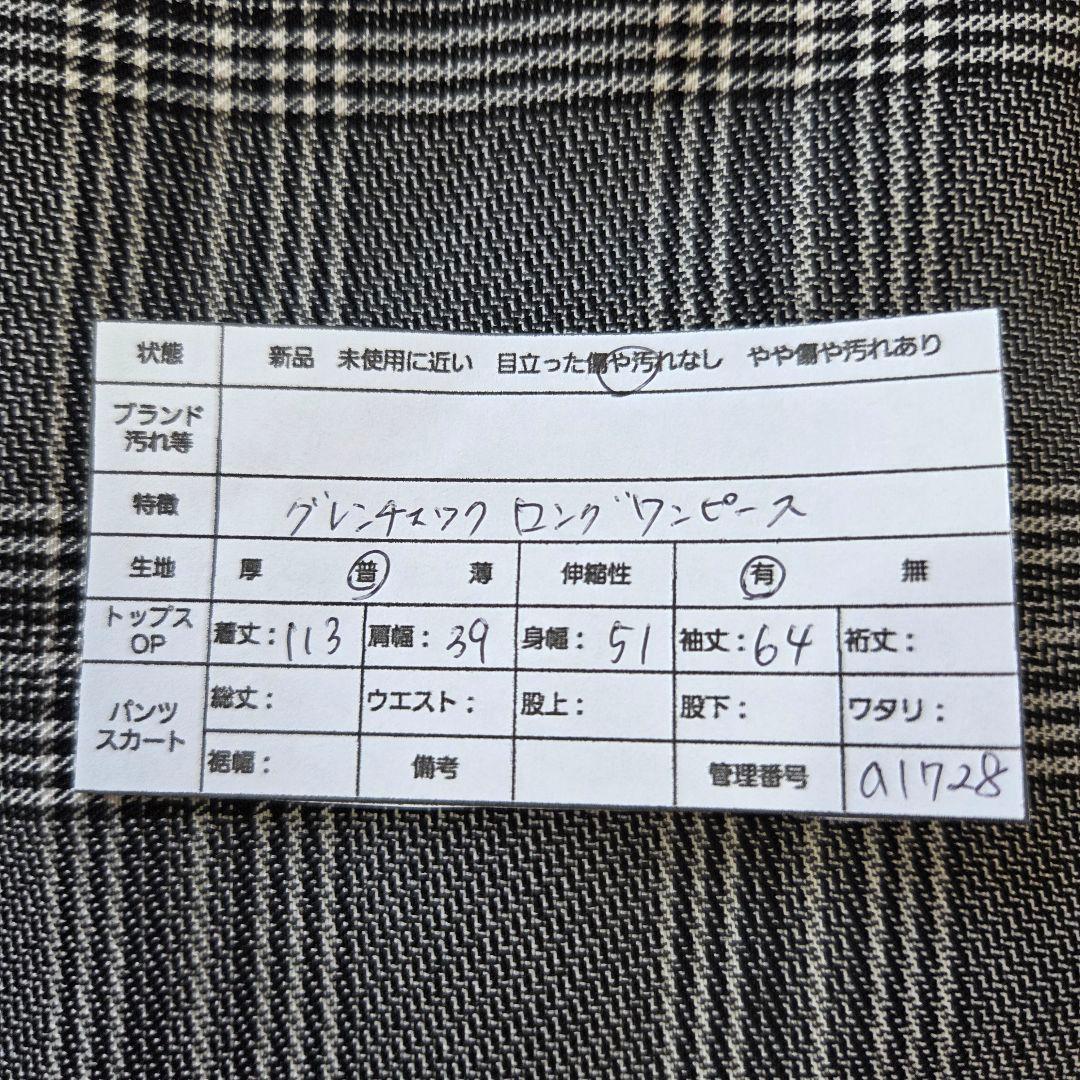 状態 新品 未使用に近い 目立った傷や汚れなし やや傷や汚れあり
ブランド
汚れ等
特徴 グレンチェック ロングワンピース
生地 厚 普 薄 伸縮性 有 無
トップス
OP 着丈：113 肩幅：39 身幅：51 袖丈：64 裄丈：
パンツ
スカート
総丈： ウエスト： 股上： 股下： ワタリ：
裾幅： 備考 管理番号 a1728